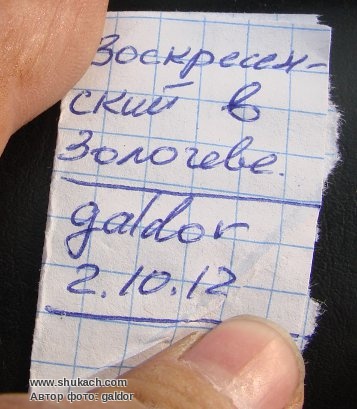 Воскресен-
ский в
Золочеве.
galdor
2.10.12
www.shukach.com
Автор фото- galdor